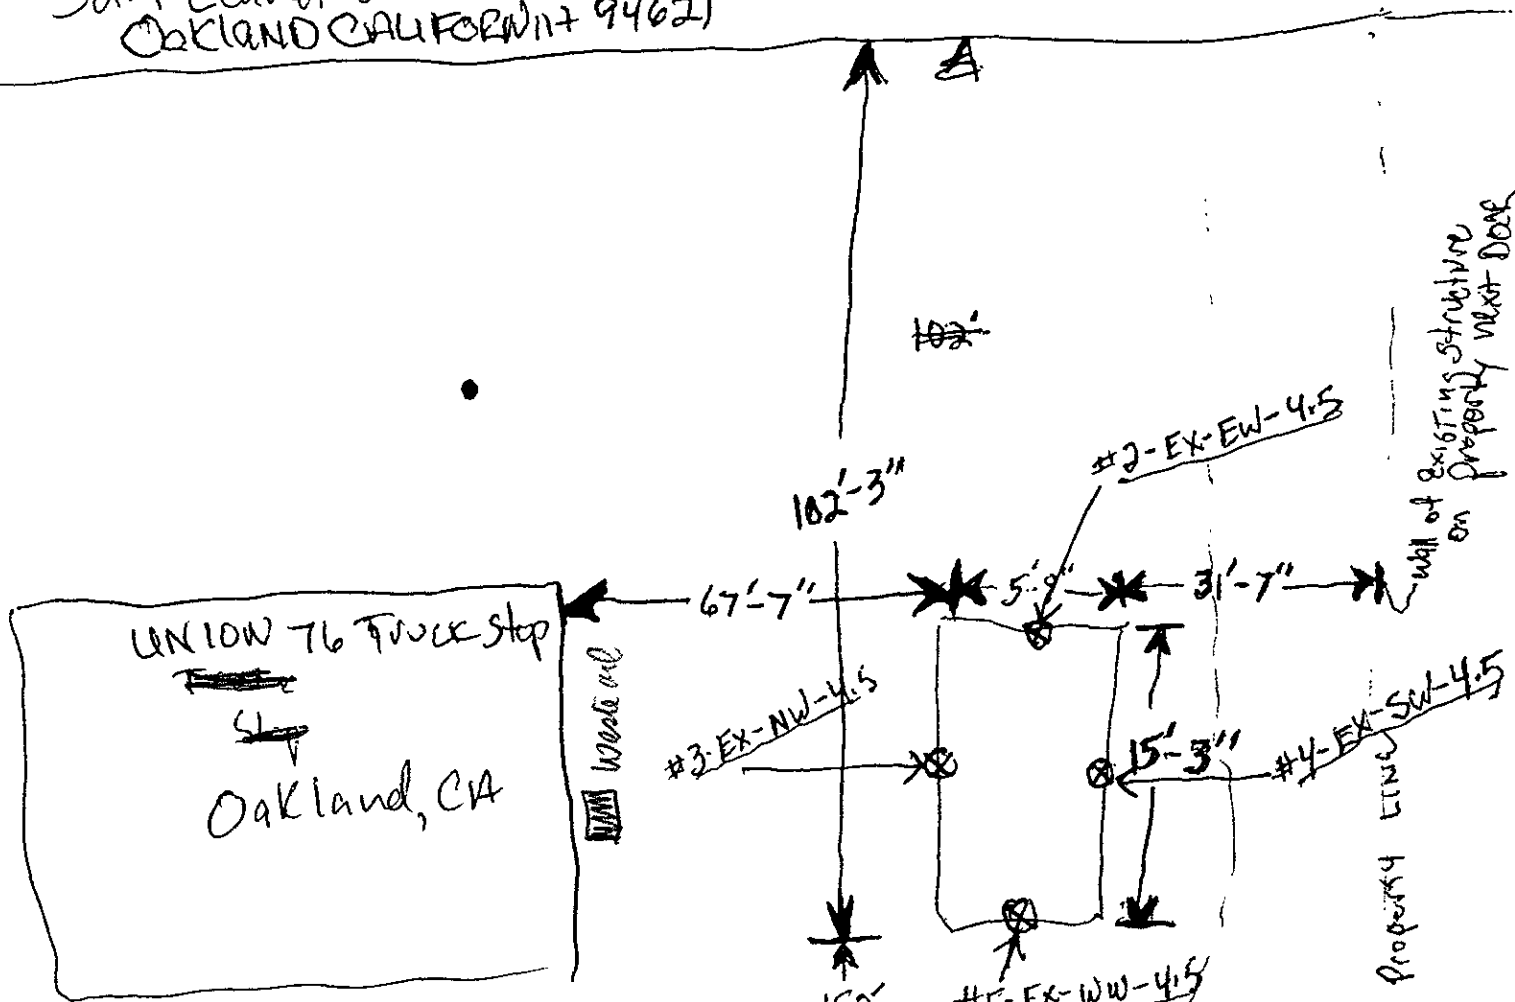 OaKlAND CALIFORNIA 94621
102'
#2-EX-EW-4.5
102'-3"
67'-7"
31'-7"
Wall of Existing Structure
on Property next DOOR
UNION 76 Truck Stop
Stop
Oakland, CA
Waste oil
#3-EX-NW-4.5
15'-3"
#4-EX-SW-4.5
Property LINE
#5-EX-WW-4.5